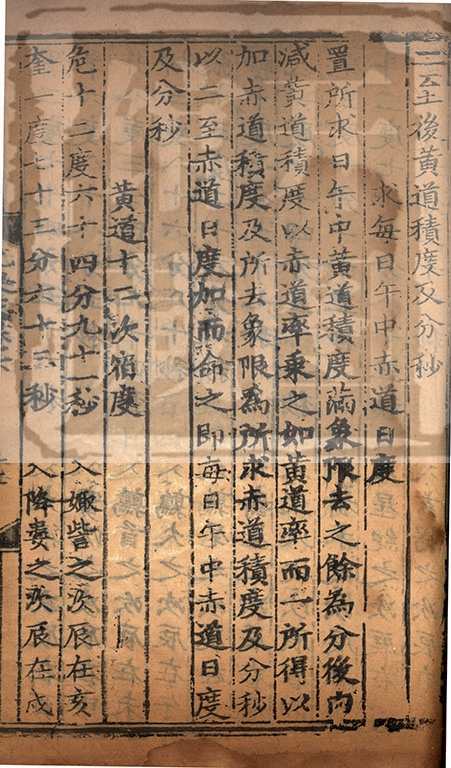 二至後黃道積度及分秒
求每日午中赤道日度
置所求日午中黃道積度滿象限去之餘為分後內
減黃道積度以赤道率乘之如黃道率而一所得以
加赤道積度及所去象限為所求赤道積度及分秒
以二至赤道日度加而命之即每日午中赤道日度
及分秒
黃道十二次宿度
危十二度六十四分九十一秒 入娵訾之次辰在亥
奎一度七十三分六十三秒 入降婁之次辰在戌